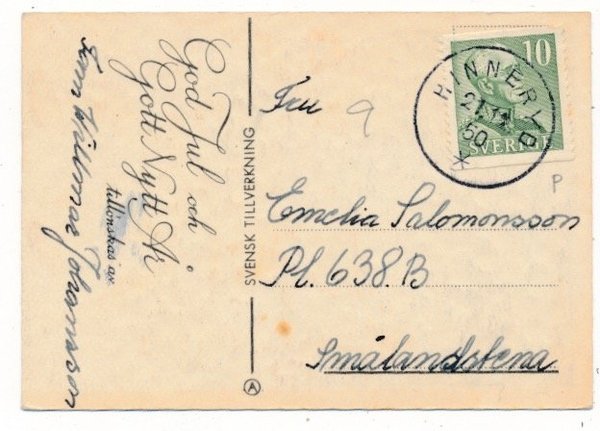 God Jul och
Gott Nytt År
tillönskas av
Johansson
SVENSK TILLVERKNING
A
Fru
Emelia Salomonsson
Pl. 638. B
Smålandstena
10
SVERIGE
HINNERYD
50
P